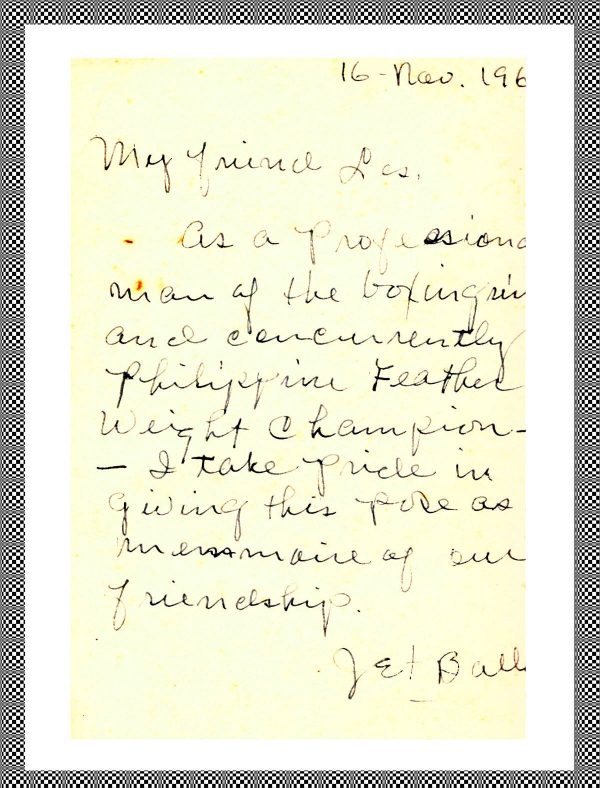 16-Nov. 196
My friend Les,
As a Professiona
man of the boxing rin
and concurrently
Philippine Feather
Weight Champion-
- I take pride in
giving this pose as
memmoire of our
friendship.
Jet Ball